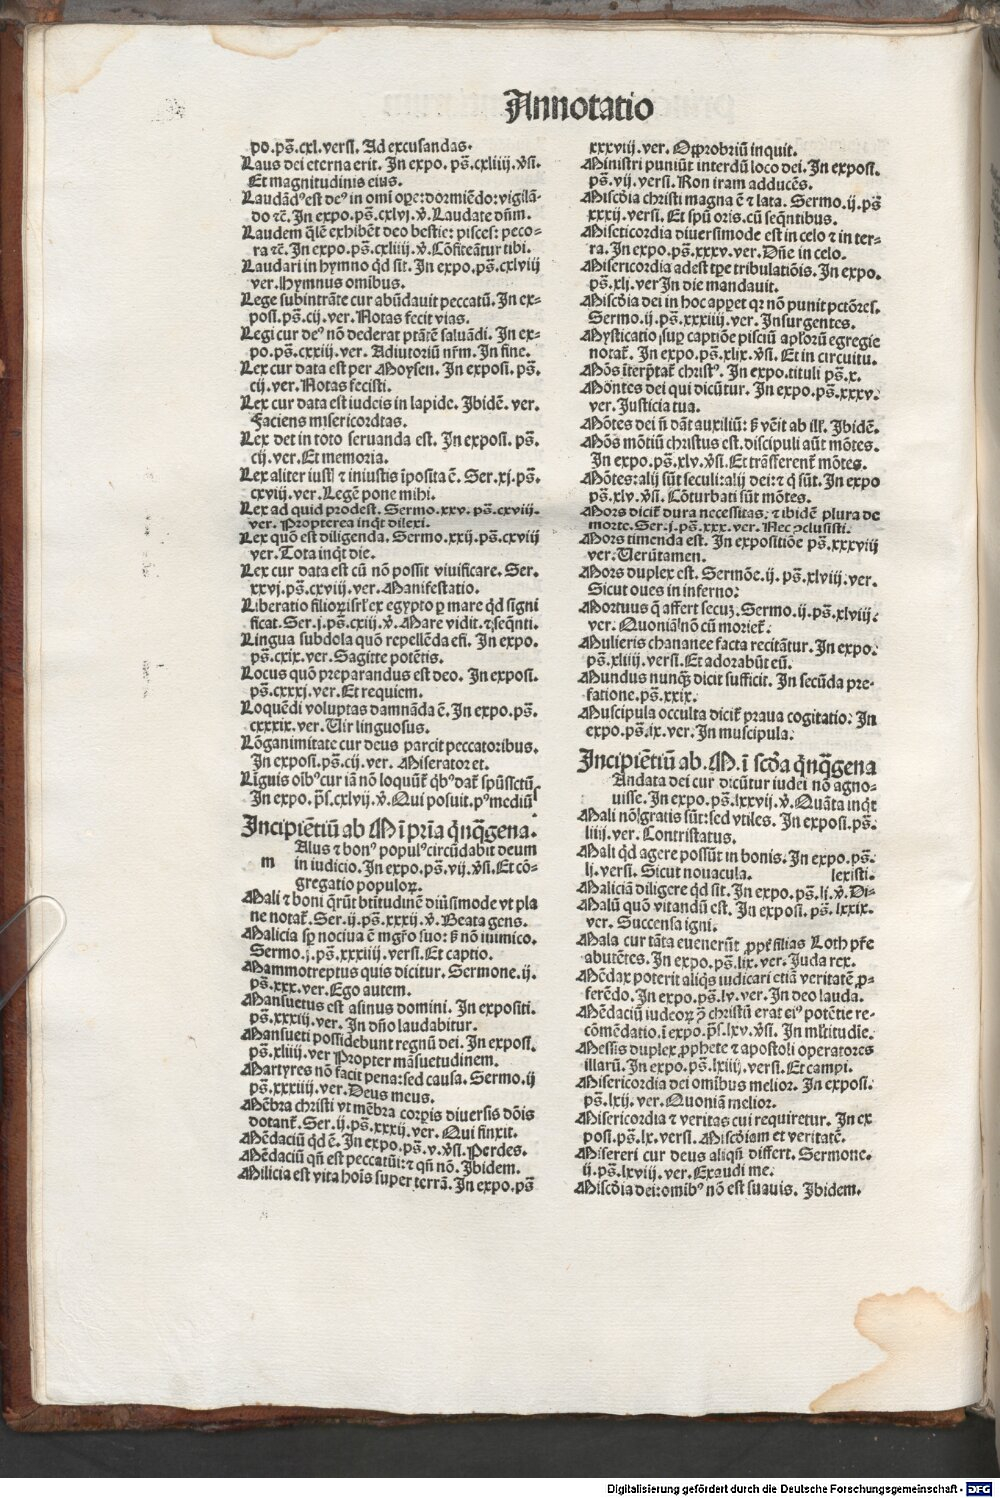 Annotatio
po.ps̄.cxl.versi. Ad excusandas.
Laus dei eterna erit. In expo. ps̄.cxliiij.v̊si.
Et magnitudinis eius.
Laudād⁹est de⁹ in omi ope:dormiēdo:vigilā-
do ⁊c̄. In expo.ps̄.cxlvj.v̊.Laudate dn̄m.
Laudem q̄lē exhibēt deo bestie: pisces: peco-
ra ⁊c̄. In expo.ps̄.cxliiij.v̊.Cōfiteātur tibi.
Laudari in hymno qd̄ sit. In expo.ps̄.cxlviij
ver.hymnus omibus.
Lege subintrāte cur abūdauit peccatū. In ex-
posi.ps̄.cij.ver.Notas fecit vias.
Legi cur de⁹ nō dederat ptātē saluādi. In ex-
po.ps̄.cxxiij.ver. Adiutoriū nr̄m. In fine.
Lex cur data est per Moysen. In exposi. ps̄.
cij.ver.Notas fecisti.
Lex cur data est iudeis in lapide. Ibidē. ver.
Faciens misericordias.
Lex dei in toto seruanda est. In exposi. ps̄.
cij.ver.Et memoria.
Lex aliter iustis ⁊ iniustis īposita ē. Ser.xj.ps̄.
cxviij.ver.Legē pone mihi.
Lex ad quid prodest. Sermo.xxv. ps̄.cxviij.
ver. Propterea inqt̄ dilexi.
Lex quō est diligenda. Sermo.xxij.ps̄.cxviij
ver.Tota inqt̄ die.
Lex cur data est cū nō possit viuificare. Ser.
xxvj.ps̄.cxviij.ver.Manifestatio.
Liberatio filioꝝ isrl̄ ex egypto ꝑ mare qd̄ signi
ficat.Ser.j.ps̄.cxiij.v̊.Mare vidit.⁊ seqn̄ti.
Lingua subdola quō repellēda est. In expo.
ps̄.cxix.ver.Sagitte potētis.
Locus quō preparandus est deo. In exposi.
ps̄.cxxxj.ver.Et requiem.
Loquēdi voluptas damnāda ē. In expo.ps̄.
cxxxix.ver.Vir linguosus.
Lōganimitate cur deus parcit peccatoribus.
In exposi.ps̄.cij.ver. Miserator et.
Līguis oīb⁹cur iā nō loquunt̄ qb⁹dat̄ spūssctū
In expo. ps̄.cxlvij.v̊.Qui posuit.p⁹mediū
Incipiētiū ab M ī pria q̄nq̄gena.
m
Alus ⁊ bon⁹ popul⁹circūdabit deum
in iudicio.In expo.ps̄.vij.v̊si.Et cō-
gregatio populoꝝ.
Mali ⁊ boni q̄rūt btītudinē diūsimode vt pla
ne notat̄. Ser.ij.ps̄.xxxij.v̊.Beata gens.
Malicia sp nociua ē mgr̄o suo: sꝫ nō inimico.
Sermo.j.ps̄.xxxiiij.versi.Et captio.
Mammotreptus quis dicitur. Sermone.ij.
ps̄.xxx.ver.Ego autem.
Mansuetus est asinus domini. In expositi.
ps̄.xxxiij.ver. In dn̄o laudabitur.
Mansueti possidebunt regnū dei. In exposi.
ps̄.xliiij.ver Propter māsuetudinem.
Martyres nō facit pena:sed causa. Sermo.ij
ps̄.xxxiiij.ver.Deus meus.
Mēbra christi vt mēbra corpis diuersis dōis
dotant̄. Ser.ij.ps̄.xxxij.ver. Qui finxit.
Mēdaciū qd̄ ē. In expo.ps̄.v.v̊si.Perdes.
Mēdaciū qn̄ est peccatū:⁊ qn̄ nō. Ibidem.
Milicia est vita hoīs super terrā.In expo.ps̄
xxxviij.ver. Opprobriū inquit.
Ministri puniūt interdū loco dei. In exposi.
ps̄.vij.versi.Non iram adducēs.
Misc̄dia christi magna ē ⁊ lata. Sermo.ij.ps̄
xxxij.versi. Et spū oris.cū seqn̄tibus.
Misericordia diuersimode est in celo ⁊ in ter-
ra. In expo.ps̄.xxxv.ver.Dn̄e in celo.
Misericordia adest tp̄e tribulatiōis. In expo.
ps̄.xlj.ver In die mandauit.
Misc̄dia dei in hoc appet qꝛ nō punit pctōres.
Sermo.ij.ps̄.xxxiiij.ver. Insurgentes.
Mysticatio sup captiōe pisciū aplo̅rū egregie
notat̄. In expo.ps̄.xlix.v̊si. Et in circuitu.
Mōs īterp̄tat̄ christ⁹. In expo.tituli ps̄.x.
Mōntes dei qui dicūtur. In expo.ps̄.xxxv.
ver. Justicia tua.
Mōtes dei n̄ dāt auxiliū: sꝫ vēit ab ill'. Ibidē.
Mōs mōtiū christus est.discipuli aūt mōtes.
In expo.ps̄.xlv.v̊si.Et trāsferent̄ mōtes.
Mōtes:alij sūt seculi:alij dei:⁊ q̄ sūt. In expo
ps̄.xlv.v̊si. Cōturbati sūt mōtes.
Mors dicit̄ dura necessitas: ⁊ ibidē plura de
morte.Ser.j.ps̄.xxx.ver. Nec ↄclusisti.
Mors timenda est. In expositiōe ps̄.xxxviij
ver.Verūtamen.
Mors duplex est. Sermōe.ij. ps̄.xlviij.ver.
Sicut oues in inferno:
Mortuus q̄ affert secuꝫ. Sermo.ij.ps̄.xlviij.
ver. Quoniā nō cū moriet̄.
Mulieris chananee facta recitātur. In expo.
ps̄.xliiij.versi.Et adorabūt eū.
Mundus nunq̄ dicit sufficit. In secūda pre-
fatione.ps̄.xxix.
Muscipula occulta dicit̄ praua cogitatio: In
expo.ps̄.ix.ver.In muscipula:
Incipiētiū ab.M.ī sc̄da q̄nq̄gena
Andata dei cur dicūtur iudei nō agno-
uisse.In expo.ps̄.lxxvij.v̊.Quāta inqt̄
Mali nō gratis sūt:sed vtiles. In exposi.ps̄.
liiij.ver.Contristatus.
Mali qd̄ agere possūt in bonis. In expo.ps̄.
lj.versi. Sicut nouacula. lexisti.
Maliciā diligere qd̄ sit. In expo.ps̄.lj.v̊.Di-
Malū quō vitandū est. In exposi.ps̄.lxxix.
ver. Succensa igni.
Mala cur tāta euenerūt ꝓpt̄ filias Loth pr̄e
abutētes. In expo.ps̄.lix.ver.Juda rex.
Mēdax poterit aliqs iudicari etiā veritatē ꝓ-
ferēdo. In expo.ps̄.lv.ver.In deo lauda.
Mēdaciū iudeoꝝ ꝓ christū erat ei⁹ potētie re-
cōmēdatio.ī expo.ps̄.lxv.v̊si. In ml̄titudīe.
Messis duplex ꝓphete ⁊ apostoli operatores
illarū. In expo.ps̄.lxiij.versi.Et campi.
Misericordia dei omibus melior. In exposi.
ps̄.lxij.ver.Quoniā melior.
Misericordia ⁊ veritas cui requiretur. In ex
posi.ps̄.lx.versi. Misc̄diam et veritatē.
Misereri cur deus aliqn̄ differt. Sermone.
ij.ps̄.lxviij.ver.Exaudi me.
Misc̄dia dei:omib⁹ nō est suauis. Ibidem.
Digitalisierung gefördert durch die Deutsche Forschungsgemeinschaft - DFG